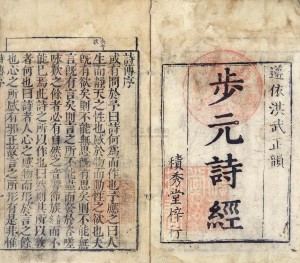 遵依洪武正韻
步元詩經
積秀堂梓行
詩傳序
或有問於予曰詩何為而作也予應之曰人
生而靜天之性也感於物而動性之欲也夫
既有欲矣則不能無思既有思矣則不能無
言既有言矣則言之所不能盡而發於咨嗟
咏歎之餘者必有自然之音響節族而不
能已焉此詩之所以作也曰然則其所以教
者何也曰詩者人心之感物而形於言之餘
也心之所感有邪正故言之所形有是非惟